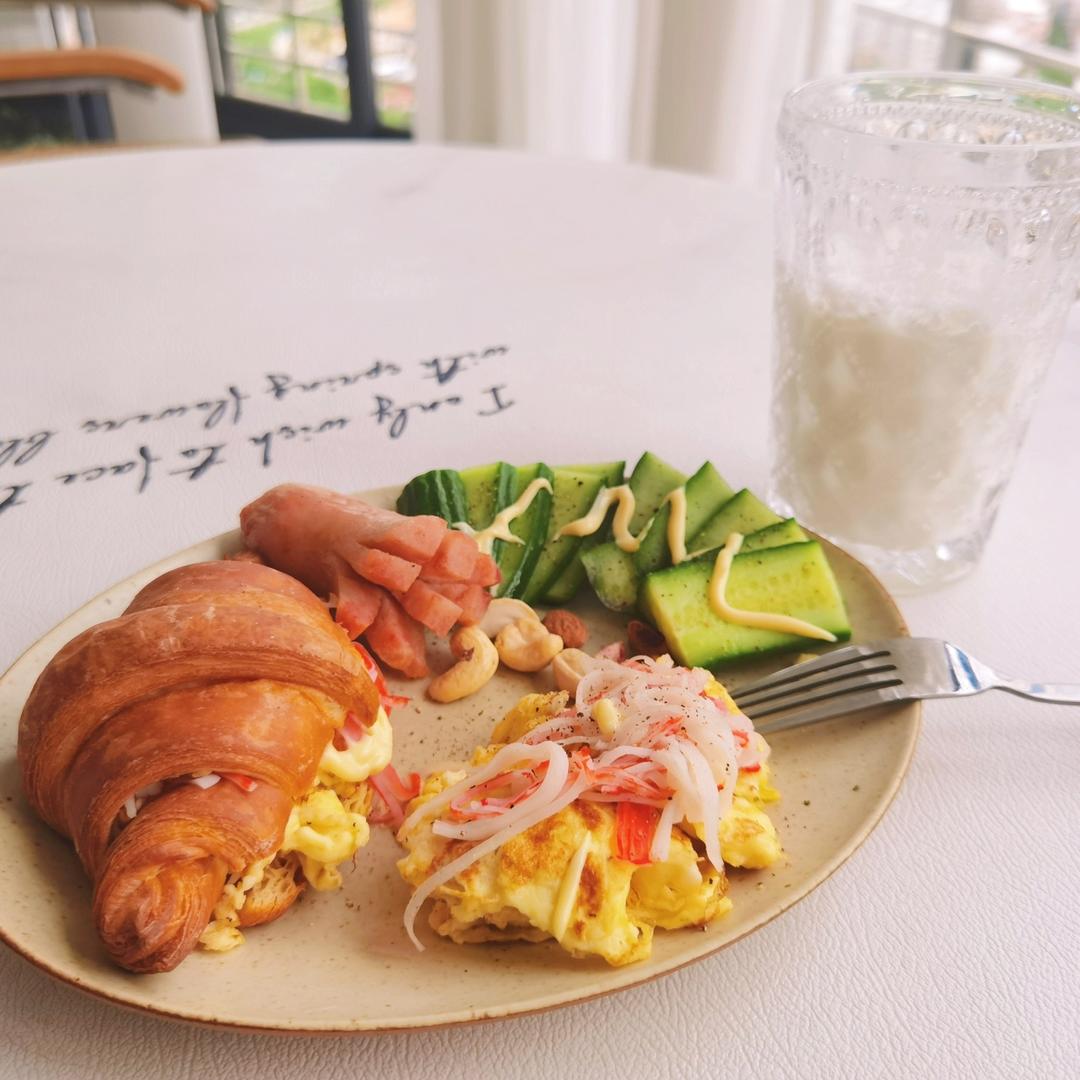 I only wish to face t
with spring flowers bl